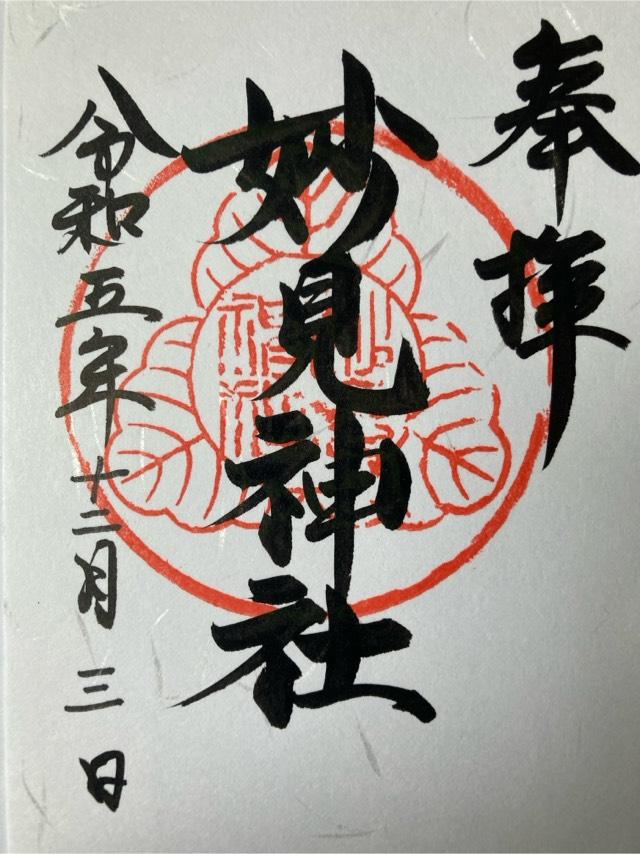 奉拝
妙見神社
令和五年十二月三日